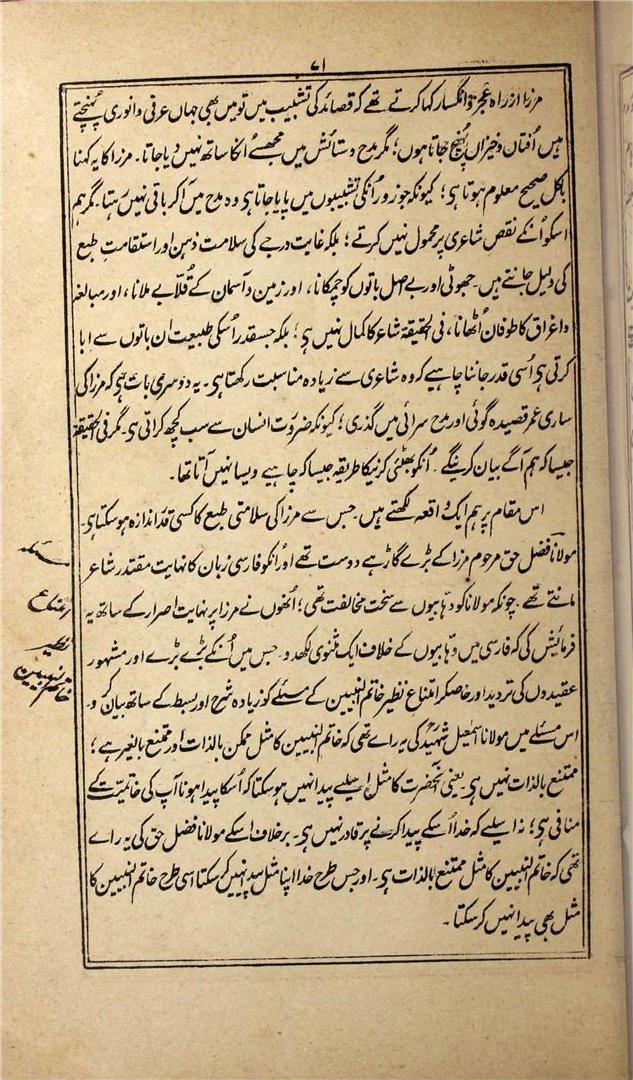 ۷۱
مرزا از راہ عجز و انکسار کہا کرتے تھے کہ قصائد کی تشبیب میں تو میں بھی جہاں عرفی و انوری پہنچتے
ہیں اُفتان و خیزاں پہنچ جاتا ہوں؛ مگر مدح و ستائش میں مجھسے اُنکا ساتھ نہیں دیا جاتا۔ مرزا کا یہ کہنا
بالکل صحیح معلوم ہوتا ہی؛ کیونکہ جو زور اُنکی تشبیبوں میں پایا جاتا ہی وہ مدح میں آکر باقی نہیں رہتا۔ مگر ہم
اسکو اُنکے نقص شاعری پر محمول نہیں کرتے؛ بلکہ غایت درجے کی سلامت ذہن اور استقامت طبع
کی دلیل جانتے ہیں۔ جھوٹی اور بے اصل باتوں کو چمکانا، اور زمین و آسمان کے قُلّابے ملانا، اور مبالغہ
و اغراق کا طوفان اُٹھانا، فی الحقیقۃ شاعر کا کمال نہیں ہی؛ بلکہ جسقدر اُسکی طبیعت ان باتوں سے ابا
کرتی ہی اُسی قدر جاننا چاہیے کہ وہ شاعری سے زیادہ مناسبت رکھتا ہی۔ یہ دوسری بات ہی کہ مرزا کی
ساری عمر قصیدہ گوئی اور مدح سرائی میں گذری؛ کیونکہ ضرورت انسان سے سب کچھ کراتی ہی۔ مگر فی الحقیقۃ
جیسا کہ ہم آگے بیان کرینگے۔ اُنکو بھٹئی کرنیکا طریقہ جیسا کہ چاہیے ویسا نہیں آتا تھا۔
اس مقام پر ہم ایک واقعہ لکھتے ہیں۔ جس سے مرزا کی سلامتی طبع کا کسی قدر اندازہ ہو سکتا ہی۔
مولانا فضل حق مرحوم مرزا کے بڑے گاڑہے دوست تھے اور اُنکو فارسی زبان کا نہایت مقتدر شاعر
مانتے تھے۔ چونکہ مولانا کو وہابیوں سے سخت مخالفت تھی؛ اُنھوں نے مرزا پر نہایت اصرار کے ساتھ یہ
فرمایش کی کہ فارسی میں وہابیوں کے خلاف ایک مثنوی لکھدو۔ جس میں اُنکے بڑے بڑے اور مشہور
عقیدوں کی تردید اور خاصکر امتناع نظیر خاتم النبیین کے مسئلے کو زیادہ شرح اور بسط کے ساتھ بیان کرو۔
اس مسئلے میں مولانا اسمٰعیل شہیدؒ کی یہ رائے تھی کہ خاتم النبیین کا مثل ممکن بالذات اور ممتنع بالغیر ہے؛
ممتنع بالذات نہیں ہی۔ یعنی آنحضرت کا مثل اسلیے پیدا نہیں ہو سکتا کہ اُسکا پیدا ہونا آپ کی خاتمیّت کے
منافی ہی؛ نہ اسلیے کہ خدا اُسکے پیدا کرنے پر قادر نہیں ہی۔ برخلاف اسکے مولانا فضل حق کی یہ رائے
تھی کہ خاتم النبیین کا مثل ممتنع بالذات ہی۔ اور جس طرح خدا اپنا مثل پیدا نہیں کر سکتا اسی طرح خاتم النبیین کا
مثل بھی پیدا نہیں کر سکتا۔
امتناع
نظیر
خاتم النبیین